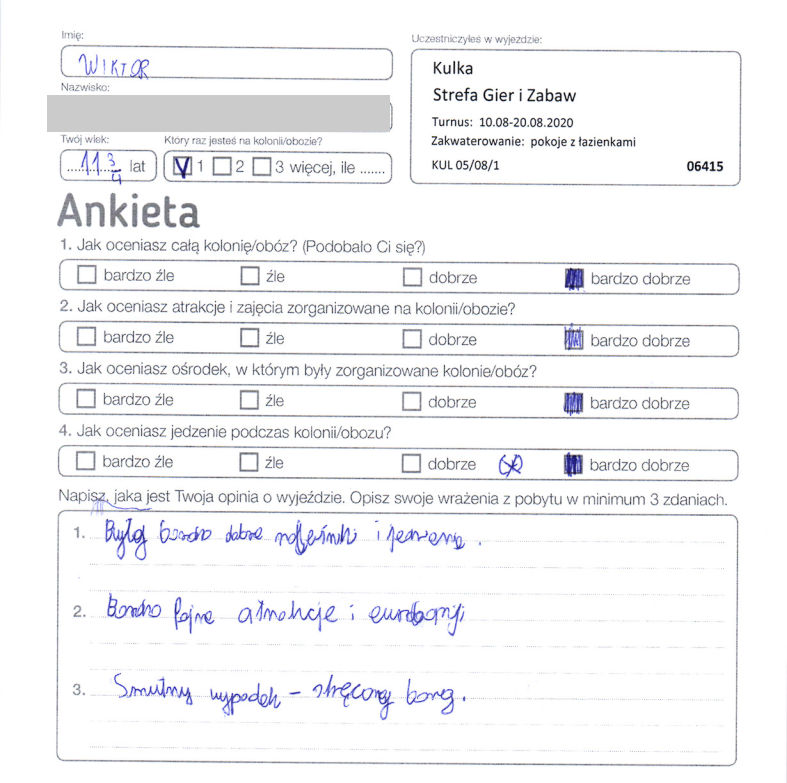 Imię:
WIKTOR
Nazwisko:
Twój wiek:
11 3/4 lat
Który raz jesteś na kolonii/obozie?
1 2 3 więcej, ile .......
Uczestniczyłeś w wyjeździe:
Kulka
Strefa Gier i Zabaw
Turnus: 10.08-20.08.2020
Zakwaterowanie: pokoje z łazienkami
KUL 05/08/1 06415
Ankieta
1. Jak oceniasz całą kolonię/obóz? (Podobało Ci się?)
bardzo źle źle dobrze bardzo dobrze
2. Jak oceniasz atrakcje i zajęcia zorganizowane na kolonii/obozie?
bardzo źle źle dobrze bardzo dobrze
3. Jak oceniasz ośrodek, w którym były zorganizowane kolonie/obóz?
bardzo źle źle dobrze bardzo dobrze
4. Jak oceniasz jedzenie podczas kolonii/obozu?
bardzo źle źle dobrze bardzo dobrze
Napisz, jaka jest Twoja opinia o wyjeździe. Opisz swoje wrażenia z pobytu w minimum 3 zdaniach.
1. bardzo dobre i jedzenie.
2. Bardzo fajne atrakcje i
3. Smutny wypadek – skręcona